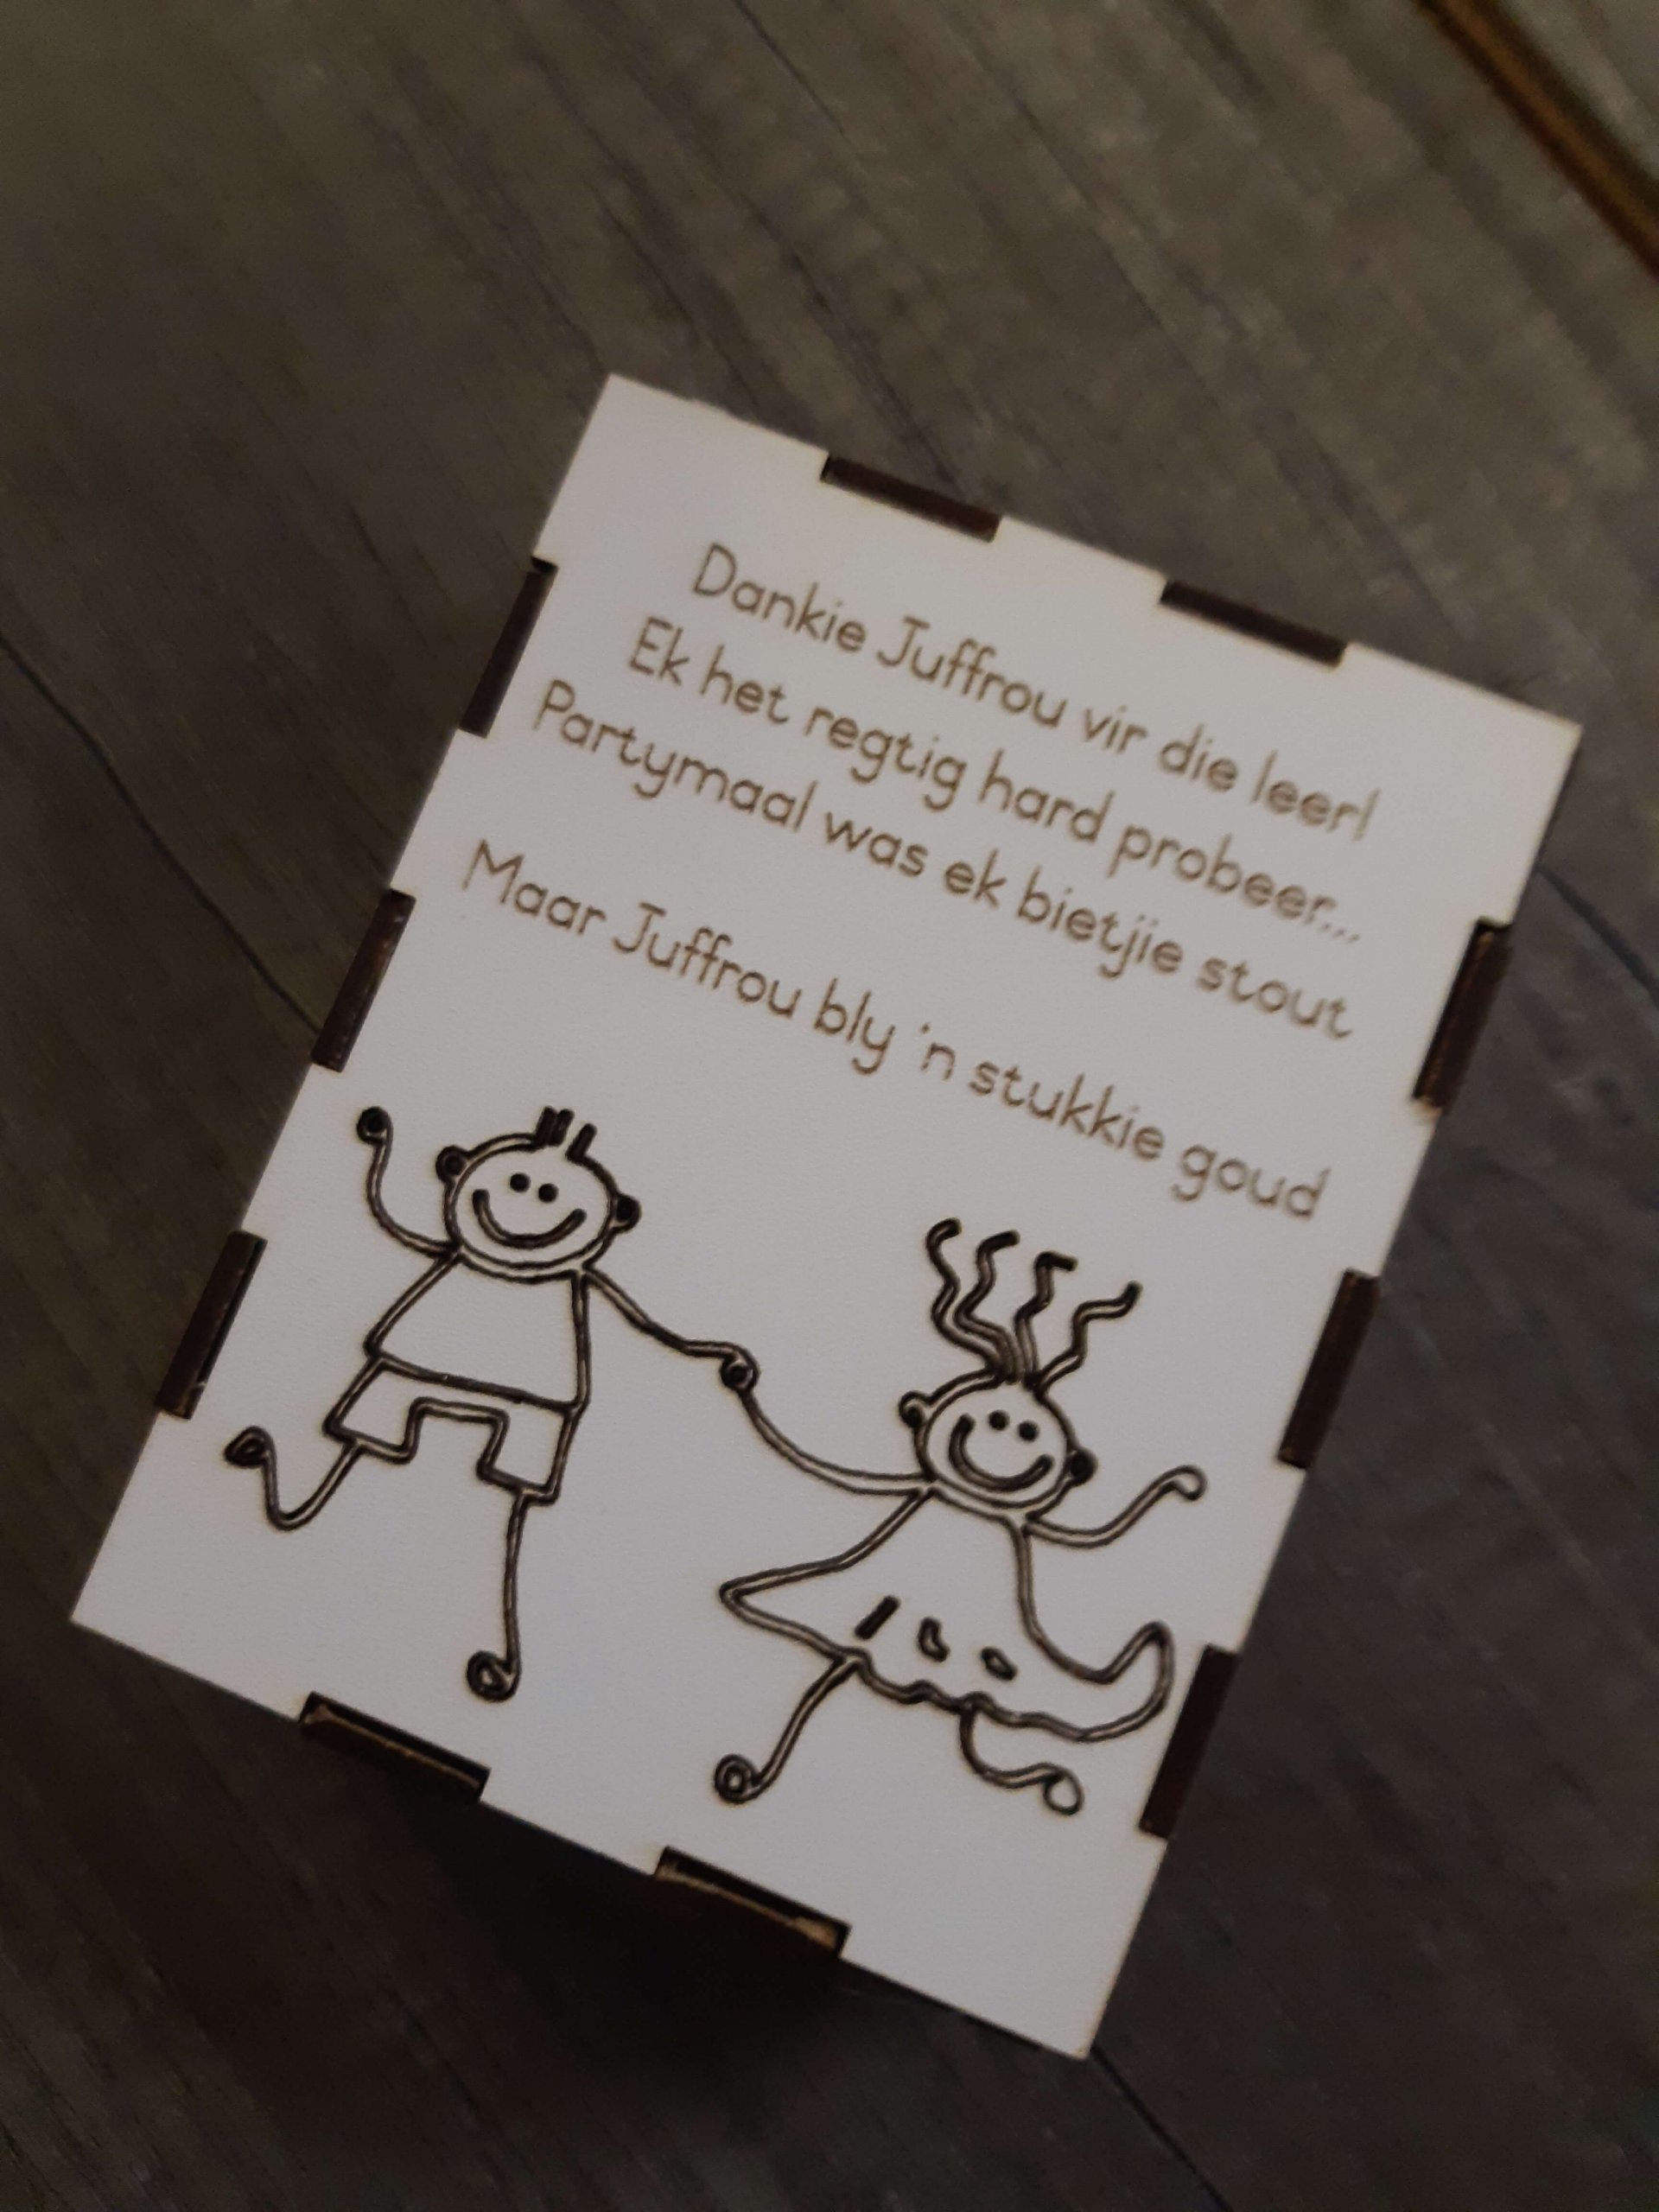 Dankie Juffrou vir die leer!
Ek het regtig hard probeer...
Partymaal was ek bietjie stout
Maar Juffrou bly 'n stukkie goud